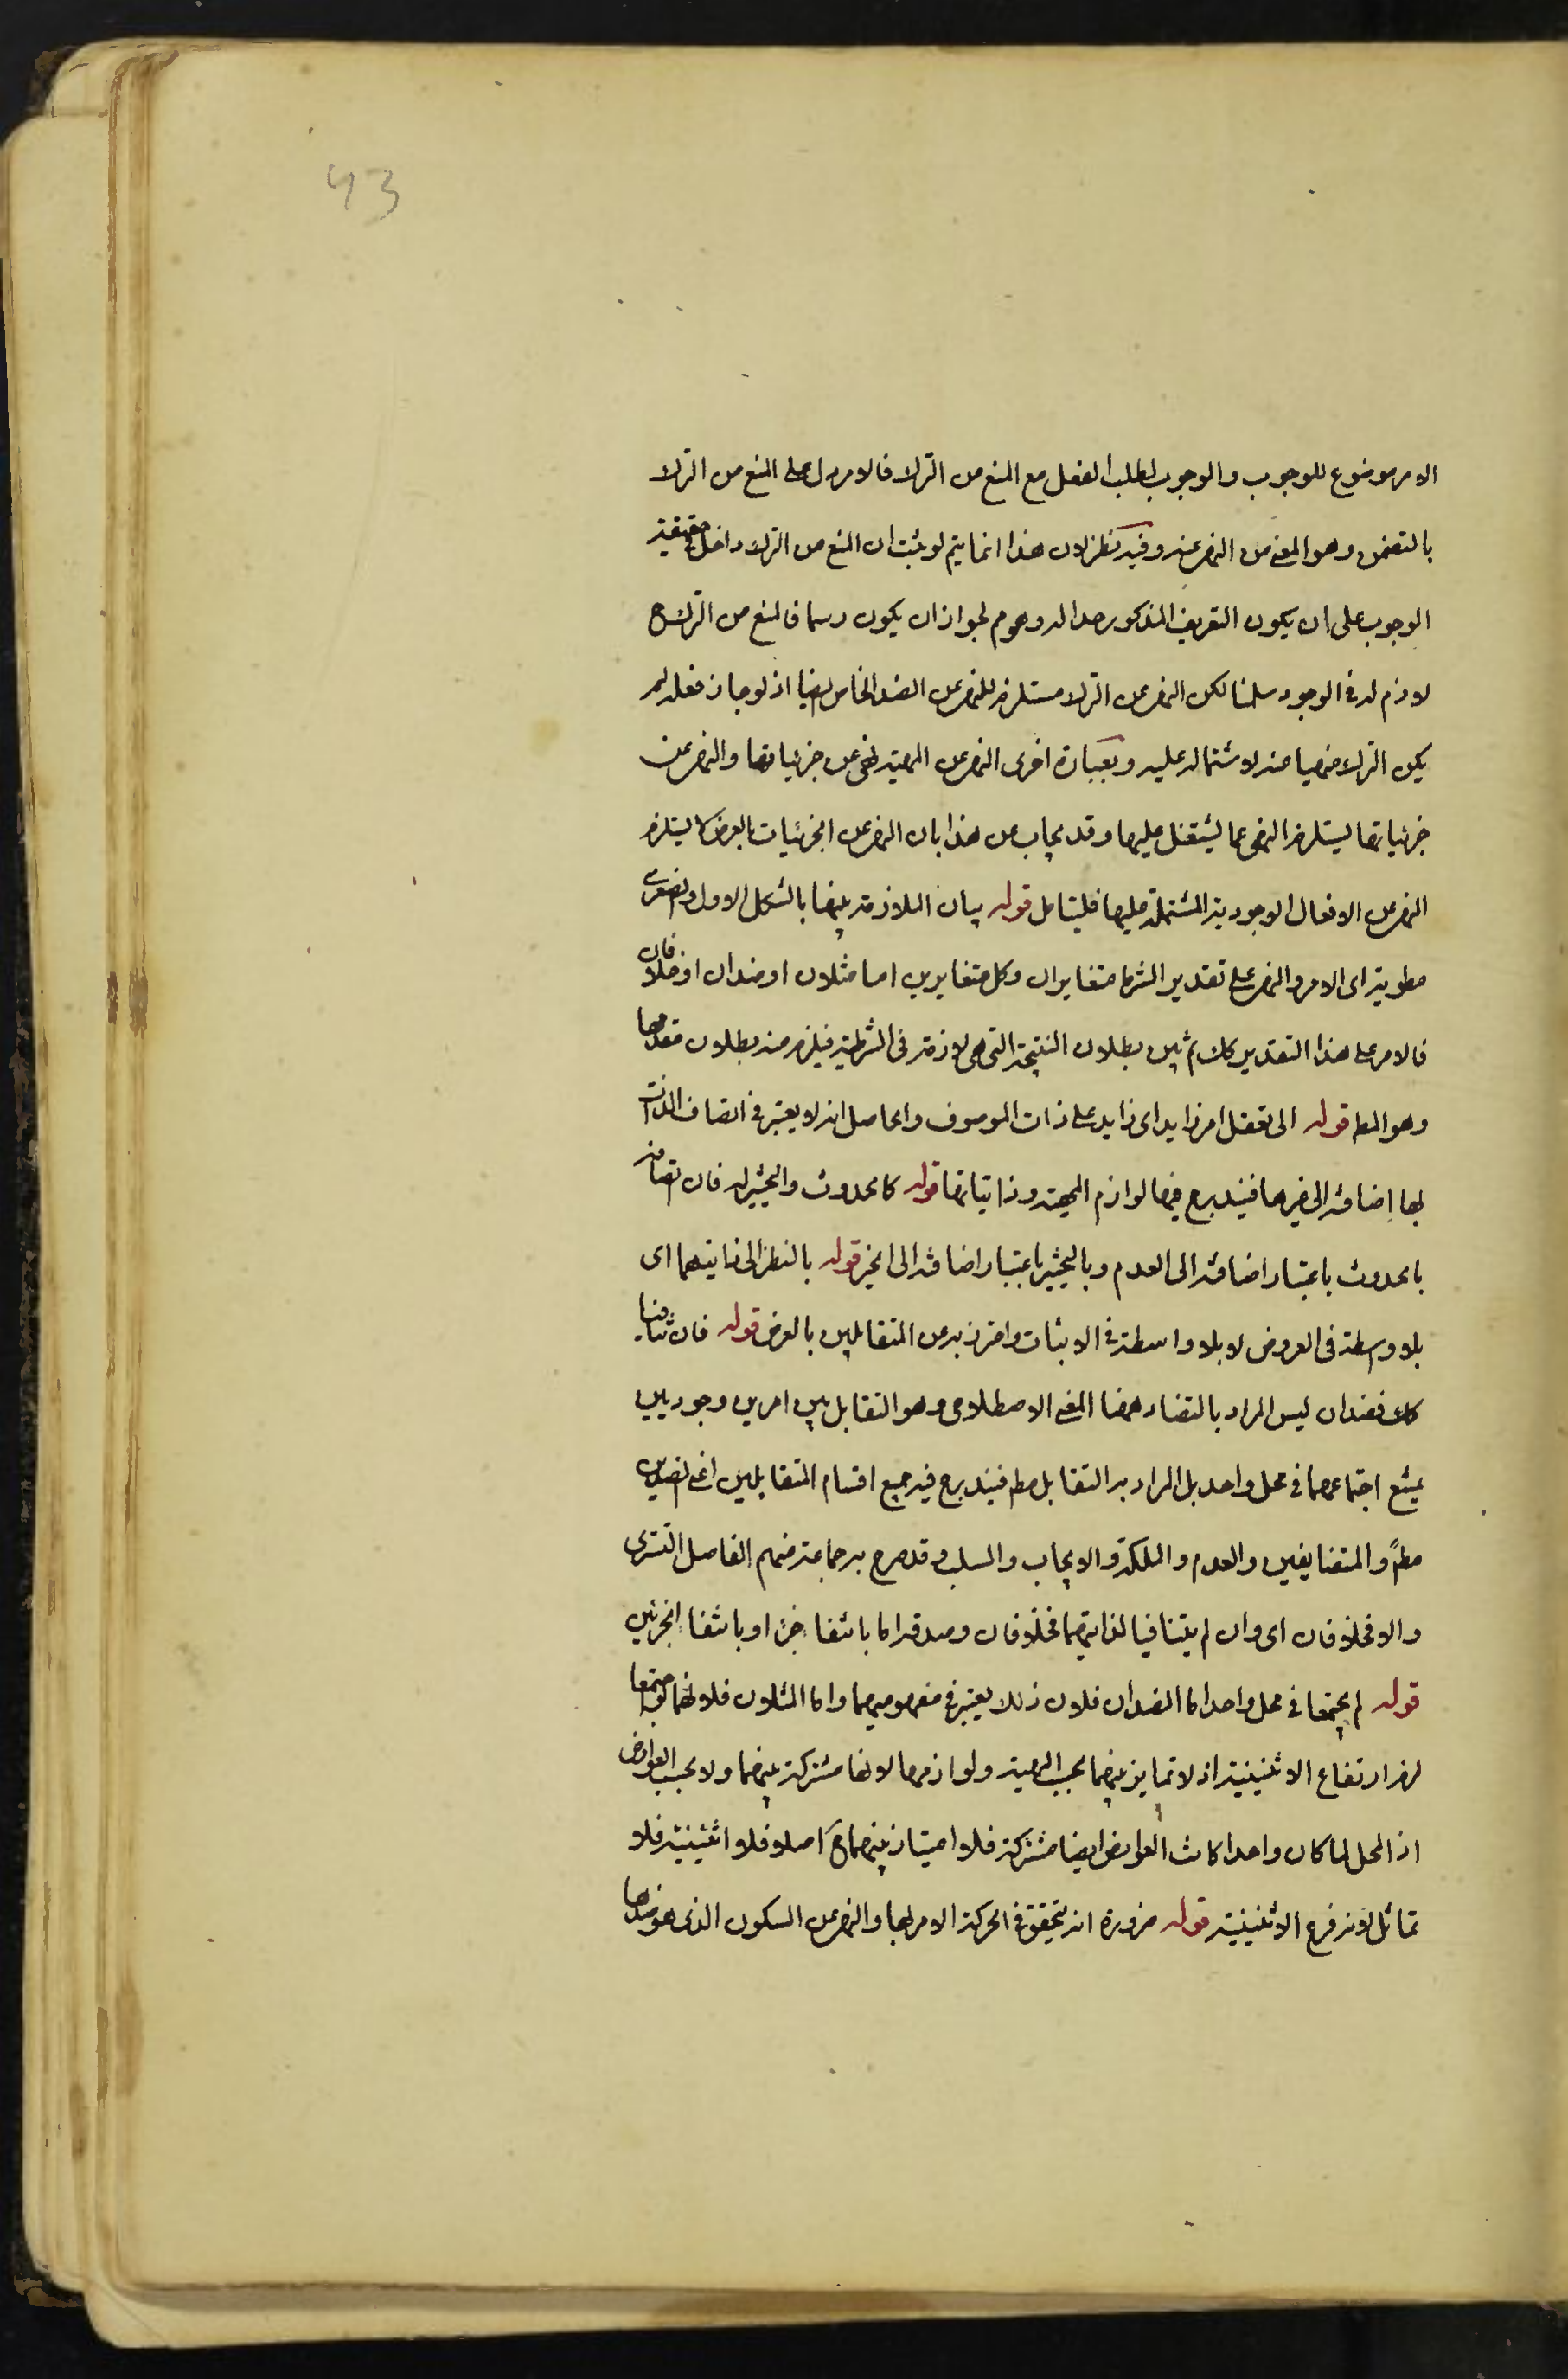 43
الامر موضوع للوجوب والوجوب لطلب الفعل مع المنع من الترك فالامر دل على المنع من الترك
بالتضمن وهو المعنى من النهى عنه وفيه نظر لان هذا انما يتم لو ثبت ان المنع من الترك داخل فى حقيقة
الوجوب على ان يكون التعريف المذكور حدا له وهو م لجواز ان يكون رسما فالمنع من الترك ح
لازم له فى الوجود سلمنا لكن النهى عن الترك مستلزم للنهى عن الضد الخاص ايضا اذ لو جاز فعله لم
يكن الترك منهيا عنه لاشتماله عليه وبعبارة اخرى النهى عن المهية نهى عن جزئياتها والنهى عن
جزئياتها يستلزم النهى عما يشتمل عليها وقد يجاب عن هذا بان النهى عن الجزئيات بالعرض لا يستلزم
النهى عن الافعال الوجودية المشتملة عليها فليتامل قوله بيان الملازمة بينها بالشكل الاول والصغرى
مطوية اى الامر والنهى على تقدير الشرط متغايران وكل متغايرين اما مثلان او ضدان او خلافان
فالامر على هذا التقدير كك ثم بين بطلان النتيجة التى هى لازمة فى الشرطية فيلزم منه بطلان مقدمها
وهو المط قوله الى تعقل امر زايد اى زايد على ذات الموصوف والحاصل انه لا يعتبر فى اتصاف الذات
بها اضافة الى غيرها فيندرج فيها لوازم المهية وذاتياتها قوله كالحدوث والتحيز له فان اتصافه
بالحدوث باعتبار اضافته الى العدم وبالتحيز باعتبار اضافته الى الحيز قوله بالنظر الى ذاتيهما اى
بلا واسطة فى العروض لا بلا واسطة فى الاثبات واحترز به عن المتقابلين بالعرض قوله فان تنافيا
كك فضدان ليس المراد بالتضاد همنا المعنى الاصطلاحى وهو التقابل بين امرين وجوديين
يمتنع اجتماعهما فى محل واحد بل المراد به التقابل مط فيندرج فيه جميع اقسام المتقابلين اعنى الضدين
مطً والمتضايفين والعدم والملكة والايجاب والسلب وقد صرح به جماعة منهم الفاضل التسترى
والا فخلافان اى وان لم يتنافيا لذاتيهما فخلافان وصدقه اما بانتفا جزء او بانتفا الجزئين
قوله لم يجتمعا فى محل واحد اما الضدان فلان ذلك يعتبر فى مفهوميهما واما المثلان فلانهما لو اجتمعا
لزم ارتفاع الاثنينية اذ لا تمايز بينهما بحسب المهية ولوازمها لانها مشتركة بينهما ولا بحسب العوارض
اذ المحل لما كان واحدا كانت العوارض ايضا مشتركة فلا امتياز بينهما ح اصلا فلا اثنينية فلا
تماثل لانه فرع الاثنينية قوله ضرورة انه يتحقق فى الحركة الامر بها والنهى عن السكون الذى هو ضدها